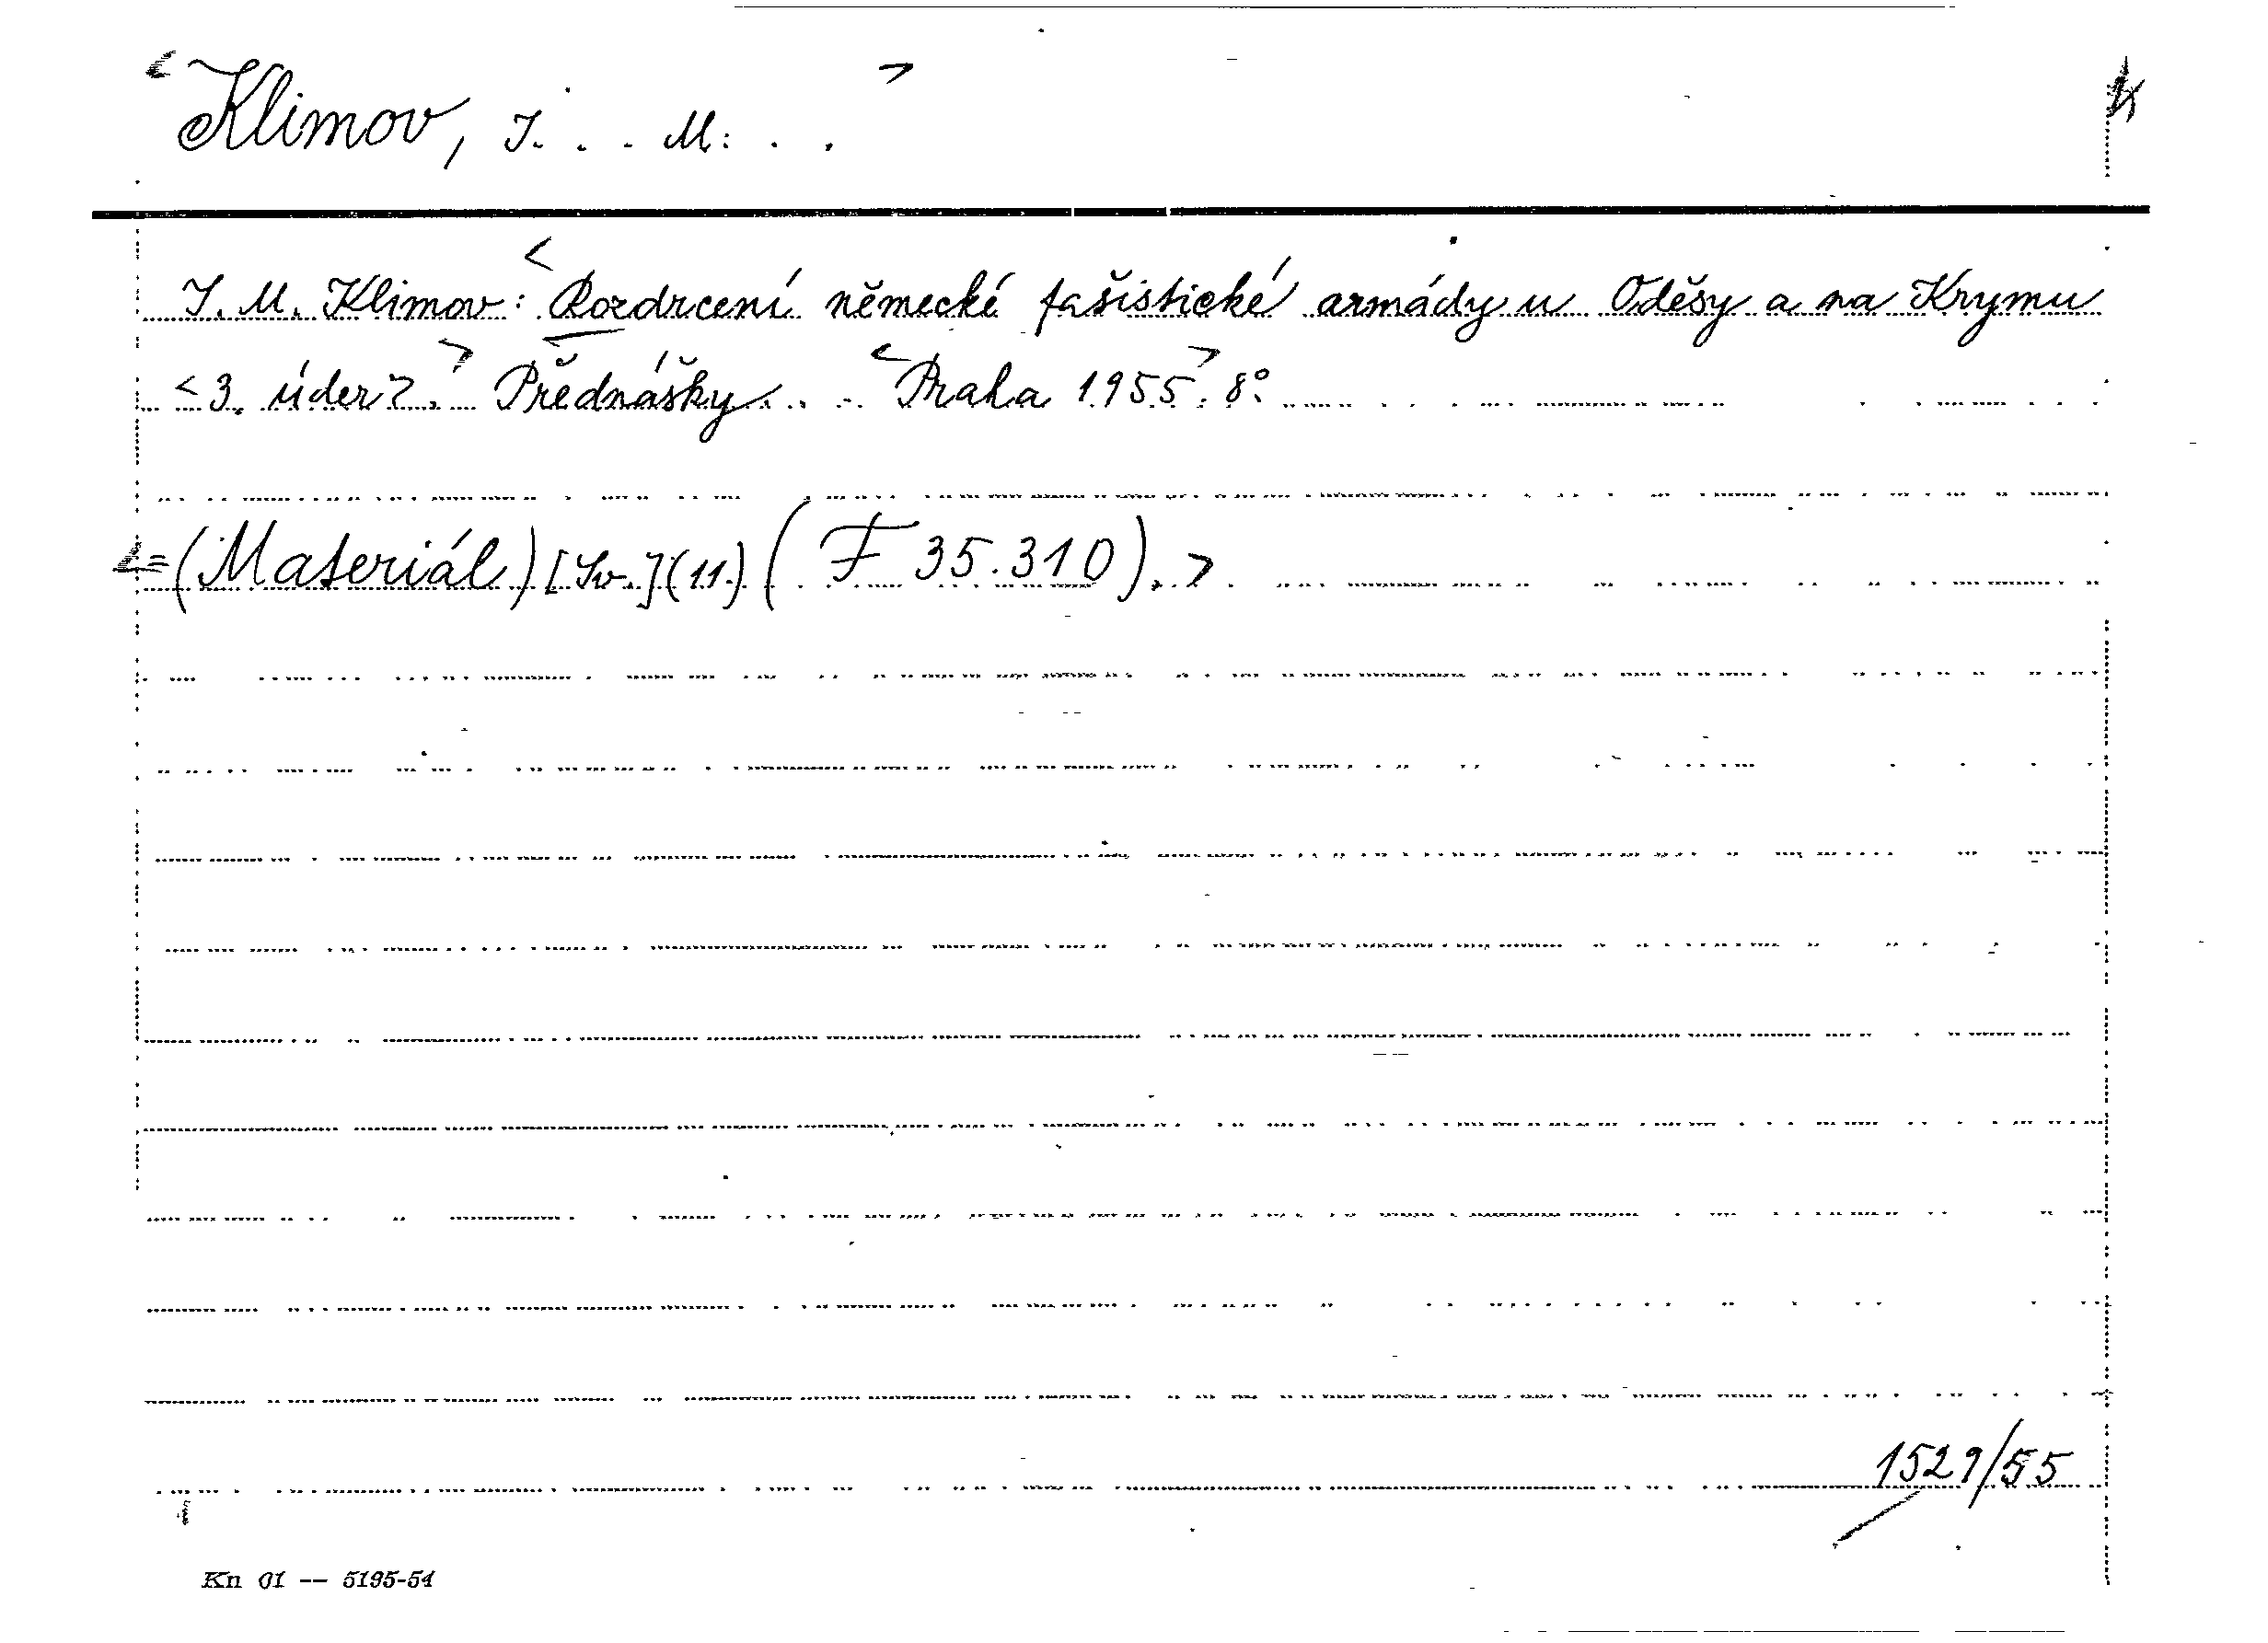 <Klimov, I. . . M. . .>
I. M. Klimov: <Rozdrcení německé fašistické armády u Oděsy a na Krymu
<3. úder>.> Přednášky. . . <Praha 1955>. 8°
<=(Materiál) [Sv.] (11.) (F 35.310).>
1529/55
Kn 01 -- 5195-54